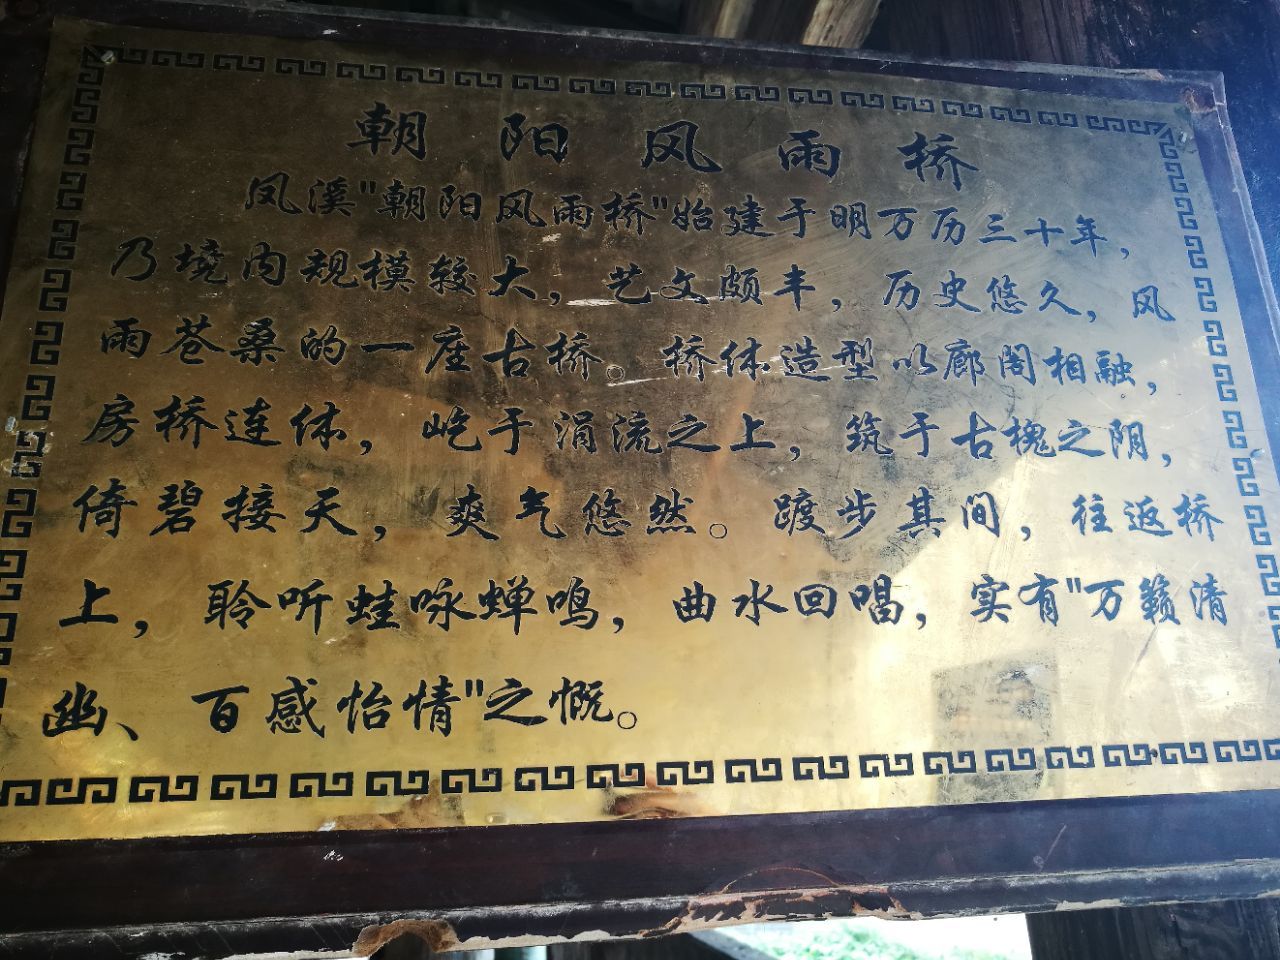 朝阳风雨桥
凤溪"朝阳风雨桥"始建于明万历三十年，
乃境内规模较大，艺文颇丰，历史悠久，风
雨苍桑的一座古桥。桥体造型以廊阁相融，
房桥连体，屹于涓流之上，筑于古槐之阴，
倚碧接天，爽气悠然。踱步其间，往返桥
上，聆听蛙咏蝉鸣，曲水回唱，实有"万籁清
幽、百感怡情"之慨。